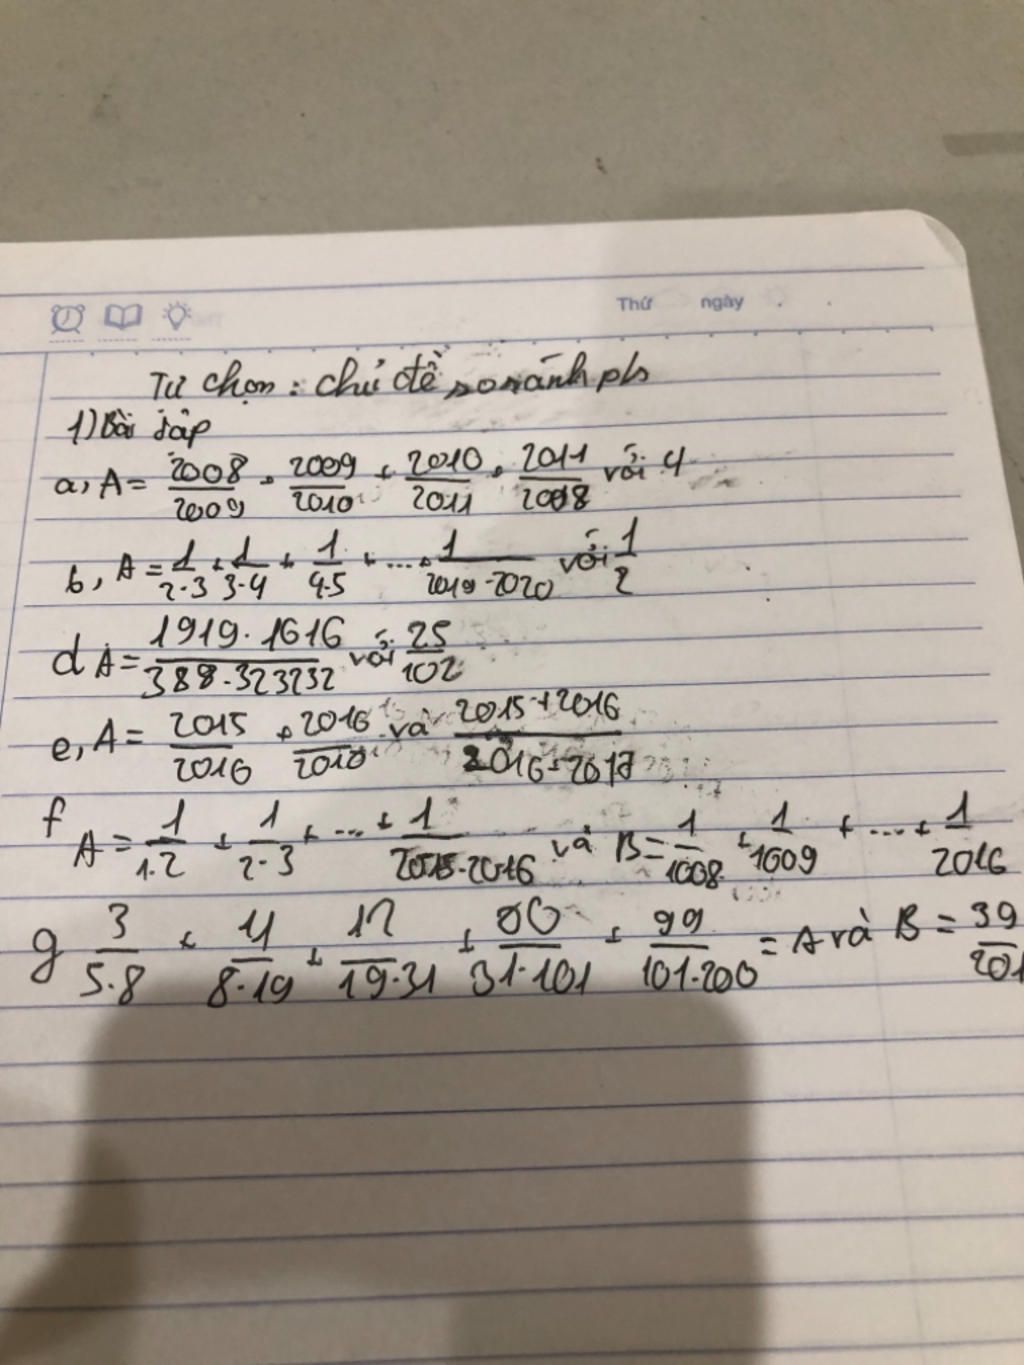 Thứ ngày
Tự chọn: chủ đề so sánh pls
1) Bài tập
a, A = 2008/2009 + 2009/2010 + 2010/2011 + 2011/2008 với 4
b, A = 1/2·3 + 1/3·4 + 1/4·5 + ... + 1/2019·2020 với 1/2
d A = 1919·1616/388·323232 với 25/102
e, A = 2015/2016 + 2016/2017 và 2015+2016/2016+2017
f A = 1/1·2 + 1/2·3 + ... + 1/2015·2016 và B = 1/1008 + 1/1009 + ... + 1/2016
g 3/5·8 + 11/8·19 + 12/19·31 + /31·101 + 99/101·200 = A và B = 39/201